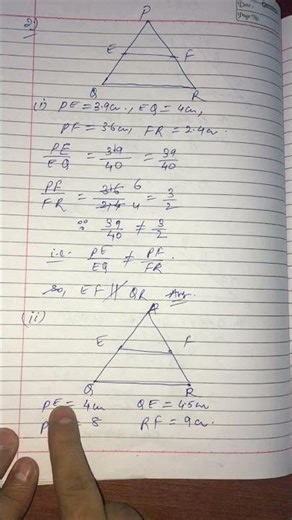 2)
P
E F
Q R
(i) PE = 3.9cm, EQ = 4cm,
PF = 36cm, FR = 2.4cm.
PE/EQ = 39/40 = 39/40
PF/FR = 36/24 6/4 = 3/2
∵ 39/40 ≠ 3/2
i.e. PE/EQ ≠ PF/FR.
So, EF ∦ QR Ans
(ii)
E F
Q R
PE = 4cm QE = 45cm
P = 8 RF = 9cm.